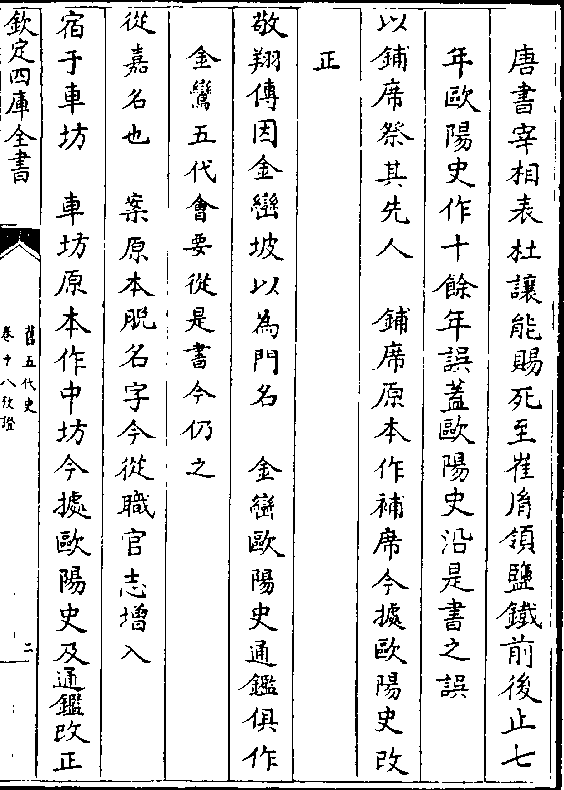 唐書宰相表杜讓能賜死至崔胤領鹽鐵前後止七
年歐陽史作十餘年誤蓋歐陽史沿是書之誤
以鋪席祭其先人　鋪席原本作補席今據歐陽史改
正
敬翔傳因金巒坡以為門名　金巒歐陽史通鑑俱作
金鸞五代會要從是書今仍之
從嘉名也　案原本脫名字今從職官志增入
宿于車坊　車坊原本作中坊今據歐陽史及通鑑改正
欽定四庫全書
舊五代史
卷十八攷證
二